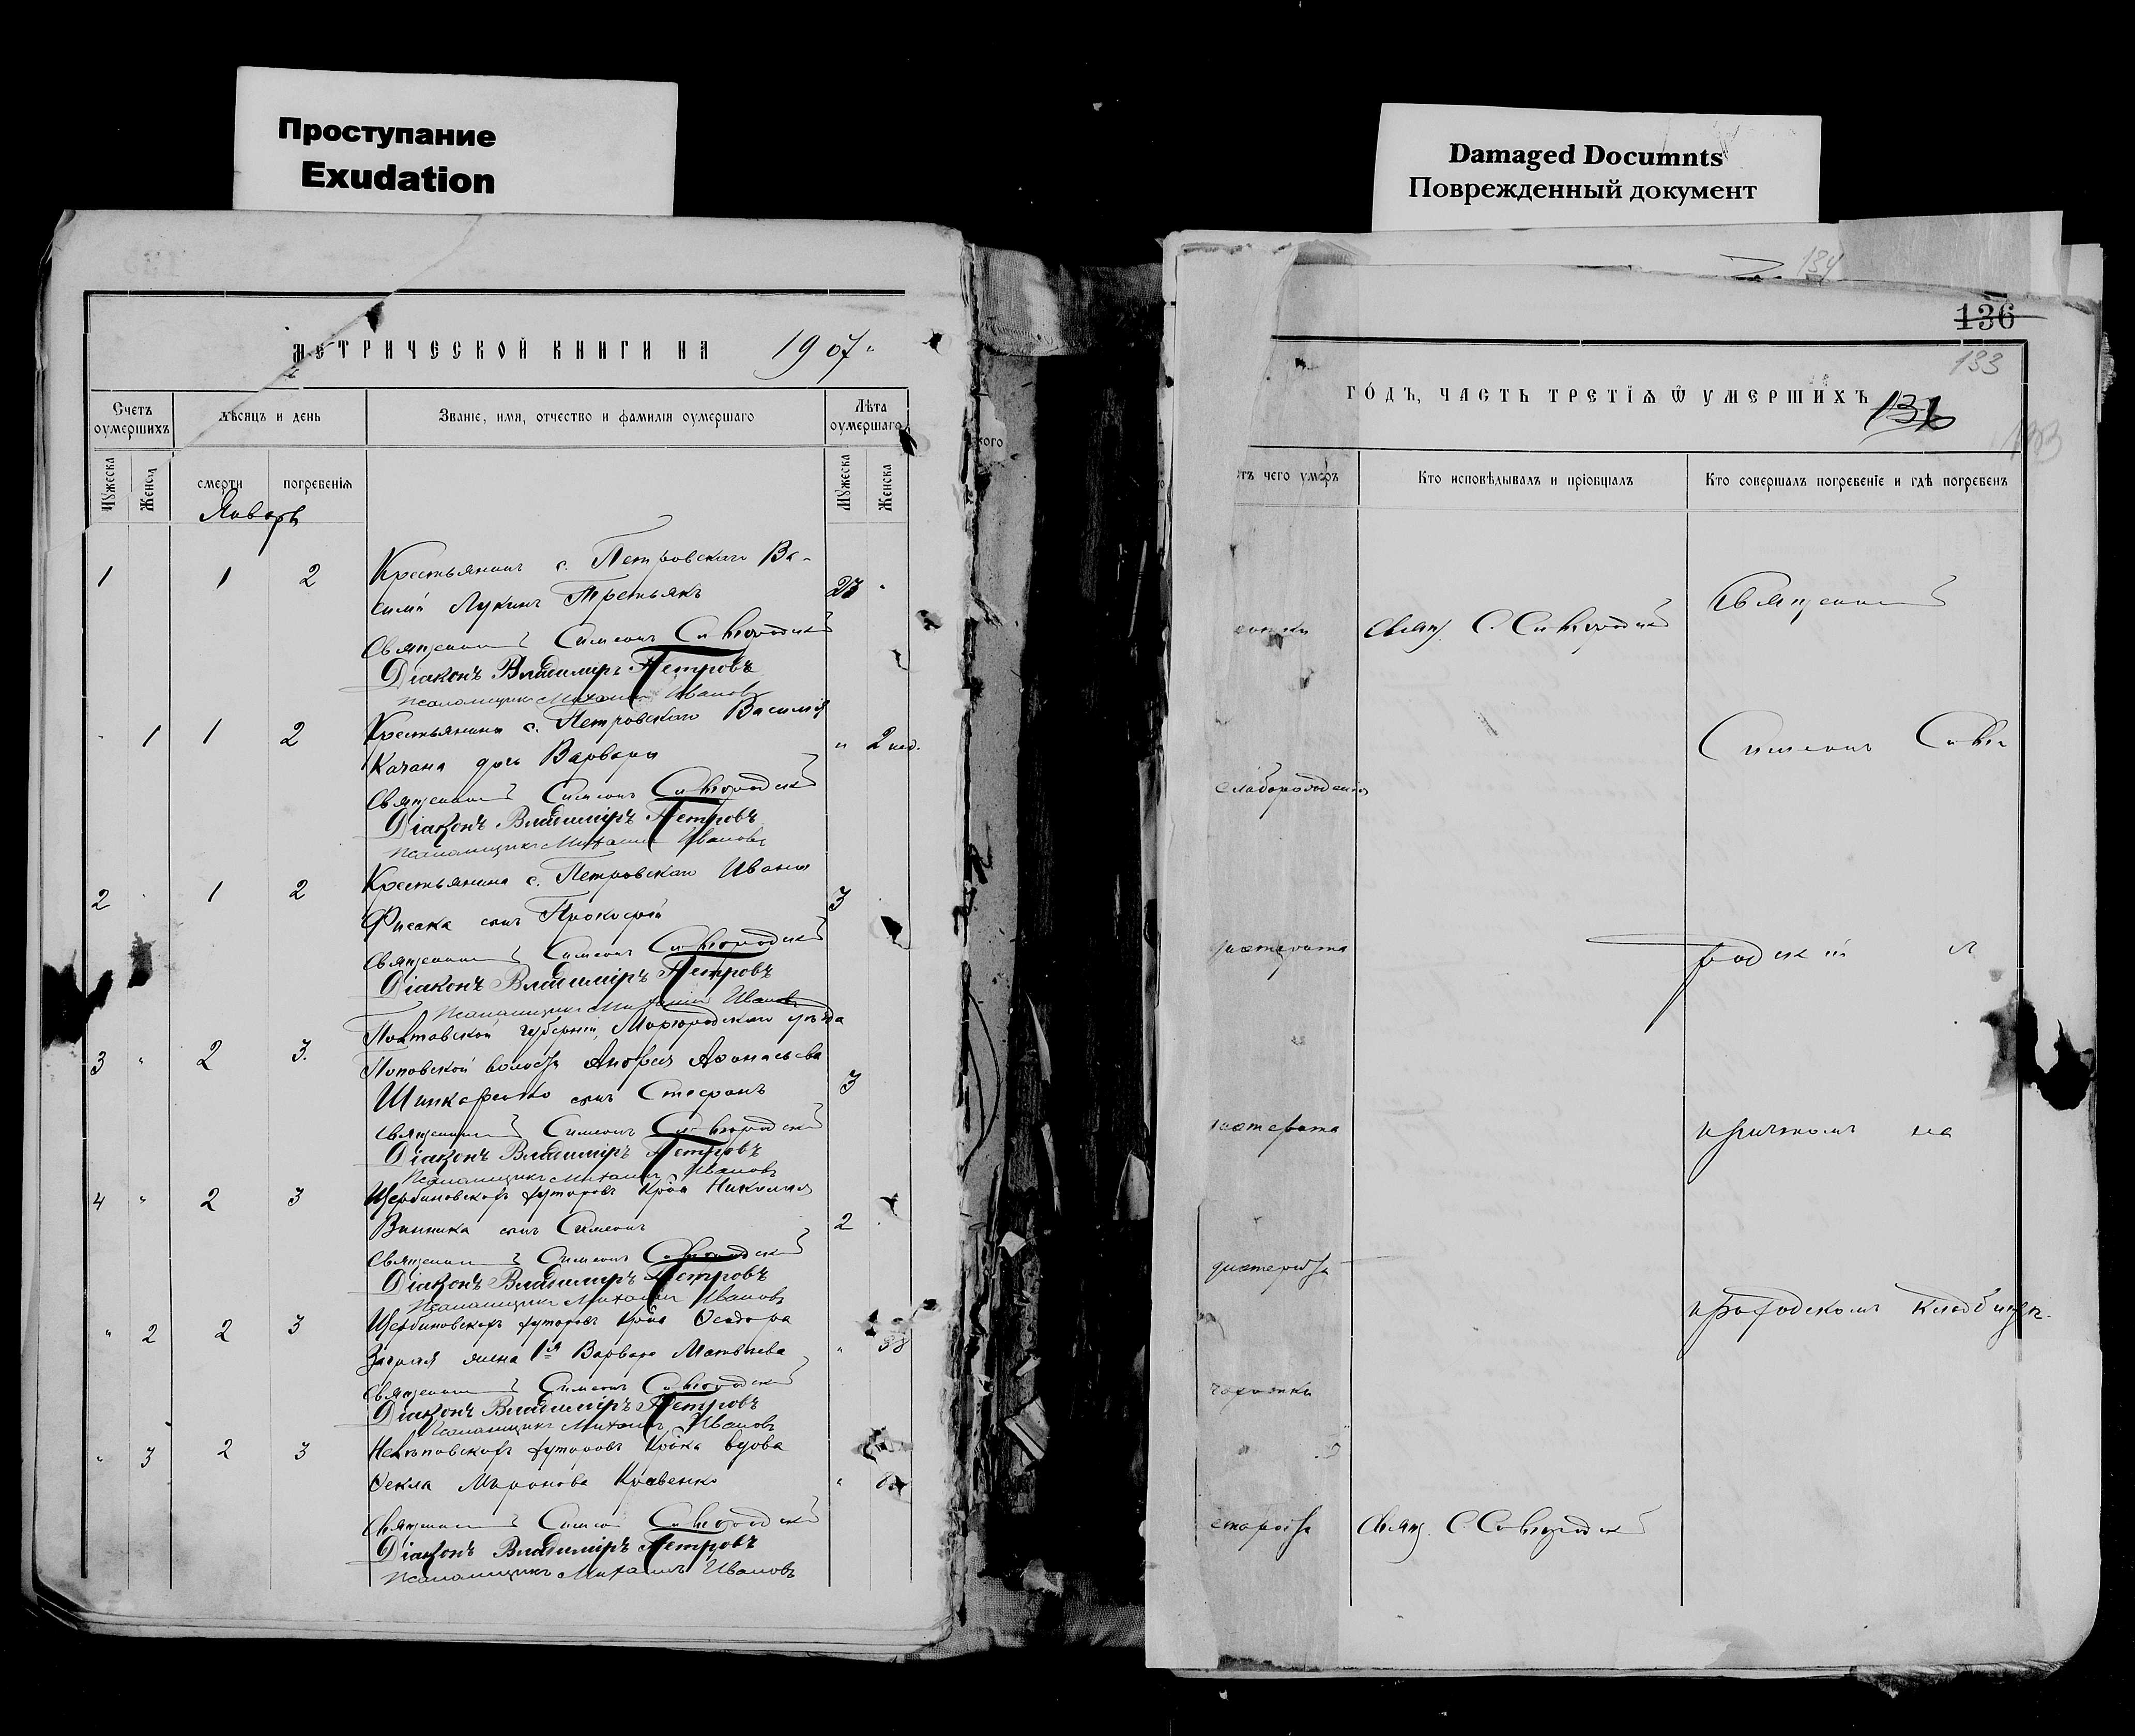 Проступание
Exudation
Damaged Documnts
Поврежденный документ
МЕТРИЧЕСКОЙ КНИГИ НА 1907
Счетъ оумершихъ
Мѣсяцъ и день
Званіе, имя, отчество и фамилія оумершаго
Лѣта оумершаго
Мужеска
Женска
смерти
погребенія
Мужеска
Женска
Январь
1 1 2 Крестьянинъ с. Петровскаго Ва-
силій Лукинъ Третьякъ 23
Священникъ Симеонъ
Діаконъ Владиміръ Петровъ
Псаломщикъ Михаилъ Ивановъ
1 1 2 Крестьянина с. Петровскаго Василія
Качана дочь Варвара " 2 нед.
Священникъ Симеонъ
Діаконъ Владиміръ Петровъ
Псаломщикъ Михаилъ Ивановъ
2 1 2 Крестьянина с. Петровскаго Ивана
Фисака сынъ Прокофій 3
Священникъ Симеонъ
Діаконъ Владиміръ Петровъ
Псаломщикъ Михаилъ Ивановъ
3 " 2 3. Полтавской губерніи, Миргородскаго уѣзда
Поповской волости Андрея Аѳанасьева
Шинкаренко сынъ Стефанъ 3
Священникъ Симеонъ
Діаконъ Владиміръ Петровъ
Псаломщикъ Михаилъ Ивановъ
4 " 2 3 Щербиновскихъ хуторовъ Кр-на Николая
Винника сынъ Симеонъ 2
Священникъ Симеонъ
Діаконъ Владиміръ Петровъ
Псаломщикъ Михаилъ Ивановъ
" 2 2 3 Щербиновскихъ хуторовъ Кр-на Ѳеодора
жена 1я Варвара Матвѣева "
Священникъ Симеонъ
Діаконъ Владиміръ Петровъ
Псаломщикъ Михаилъ Ивановъ
" 3 2 3 Нелѣповскихъ хуторовъ Кр-ка вдова
Ѳекла Миронова Кравенко "
Священникъ Симеонъ
Діаконъ Владиміръ Петровъ
Псаломщикъ Михаилъ Ивановъ
134
136
133
ГОДЪ, ЧАСТЬ ТРЕТІЯ Ѿ УМЕРШИХЪ
136
тъ чего умеръ
Кто исповѣдывалъ и пріобщалъ
Кто совершалъ погребеніе и гдѣ погребенъ
Священникъ
Свящ. С.
Симеонъ
слаборожденія
дифтерита
съ
дифтерита
причтомъ на
дифтерита
приходскомъ кладбищѣ.
чахотки
старости Свящ. С.